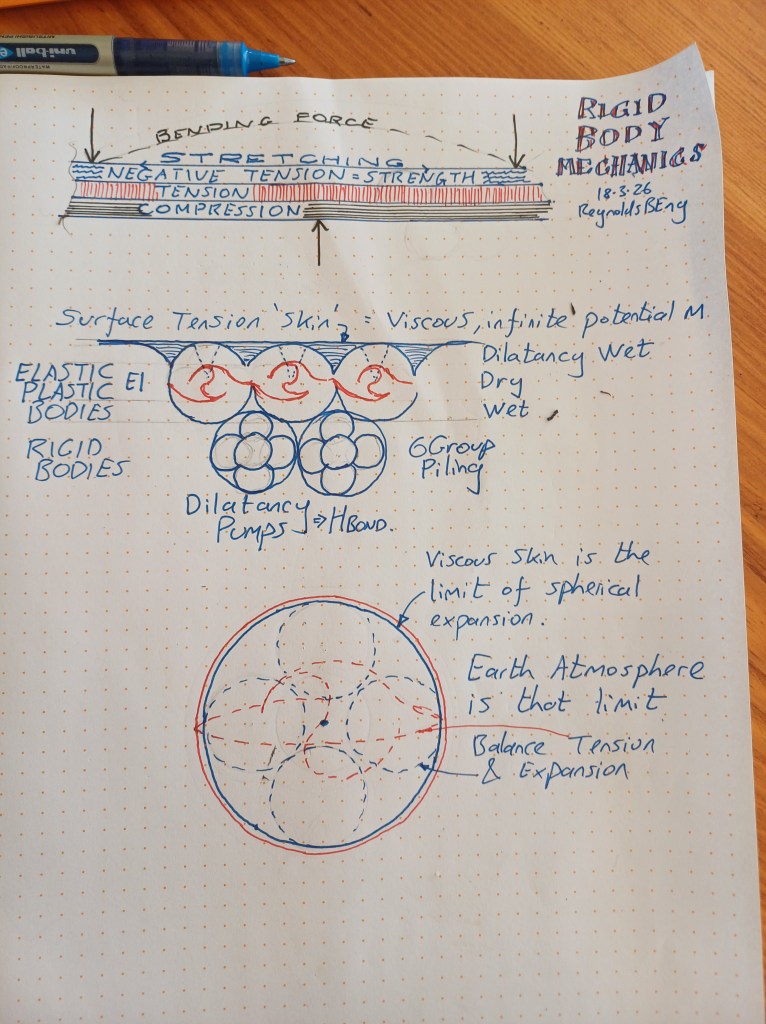 uni-ball
RIGID
BODY
MECHANICS
18·3·26
Reynolds BEng
BENDING FORCE
STRETCHING
NEGATIVE TENSION = STRENGTH
TENSION
COMPRESSION
Surface Tension 'Skin' = Viscous, infinite potential M.
Dilatancy Wet
Dry
Wet
ELASTIC
PLASTIC EI
BODIES
RIGID
BODIES
6 Group
Piling
Dilatancy
Pumps ⇒ HBOND.
Viscous Skin is the
limit of spherical
expansion.
Earth Atmosphere
is that limit
Balance Tension
& Expansion